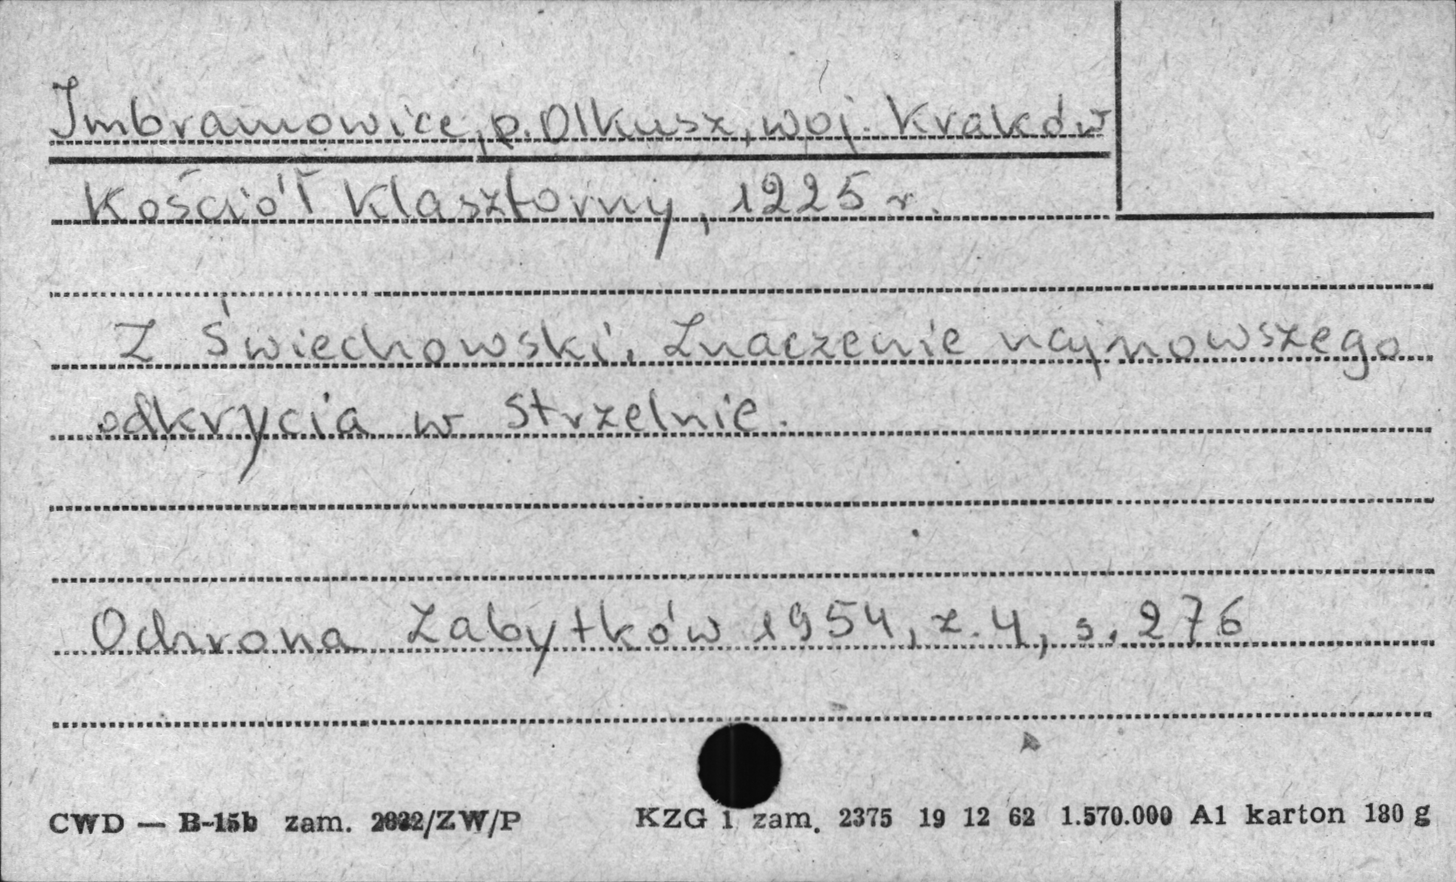 Imbramowice, p. Olkusz, woj. Kraków
Kościół Klasztorny, 1225 r.
Z Świechowski. Znaczenie najnowszego
odkrycia w Strzelnie.
Ochrona Zabytków 1954, z. 4, s. 276
CWD — B-15b zam. 2822/ZW/P KZG 1 zam. 2375 19 12 62 1.570.000 A1 karton 180 g